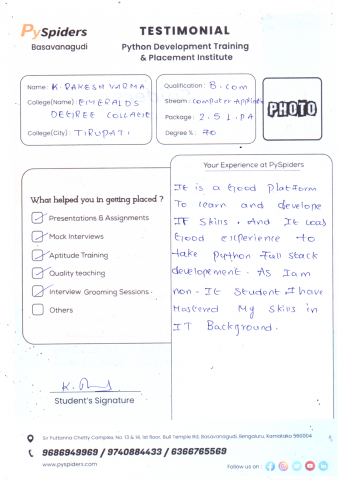 PySpiders
Basavanagudi
TESTIMONIAL
Python Development Training
& Placement Institute
Name: K. RAKESH VARMA
College(Name): EMERALDS
DEGREE COLLAGE
College(City): TIRUPATI
Qualification: B.com
Stream: Computer Application
Package: 2.5 L.P.A
Degree %: 70
PHOTO
What helped you in getting placed ?
Presentations & Assignments
Mock Interviews
Aptitude Training
Quality teaching
Interview Grooming Sessions
Others
Your Experience at PySpiders
It is a Good platform
To learn and develope
IT Skills. And It was
Good experience to
take python Full stack
developement. As Iam
non-It Student, I have
Mastered My Skills in
IT Background.
Student's Signature
Sir Puttanna Chetty Complex, No. 13 & 14, 1st floor, Bull Temple Rd, Basavanagudi, Bengaluru, Karnataka 560004
9686949969 / 9740884433 / 6366765569
www.pyspiders.com
Follow us on :